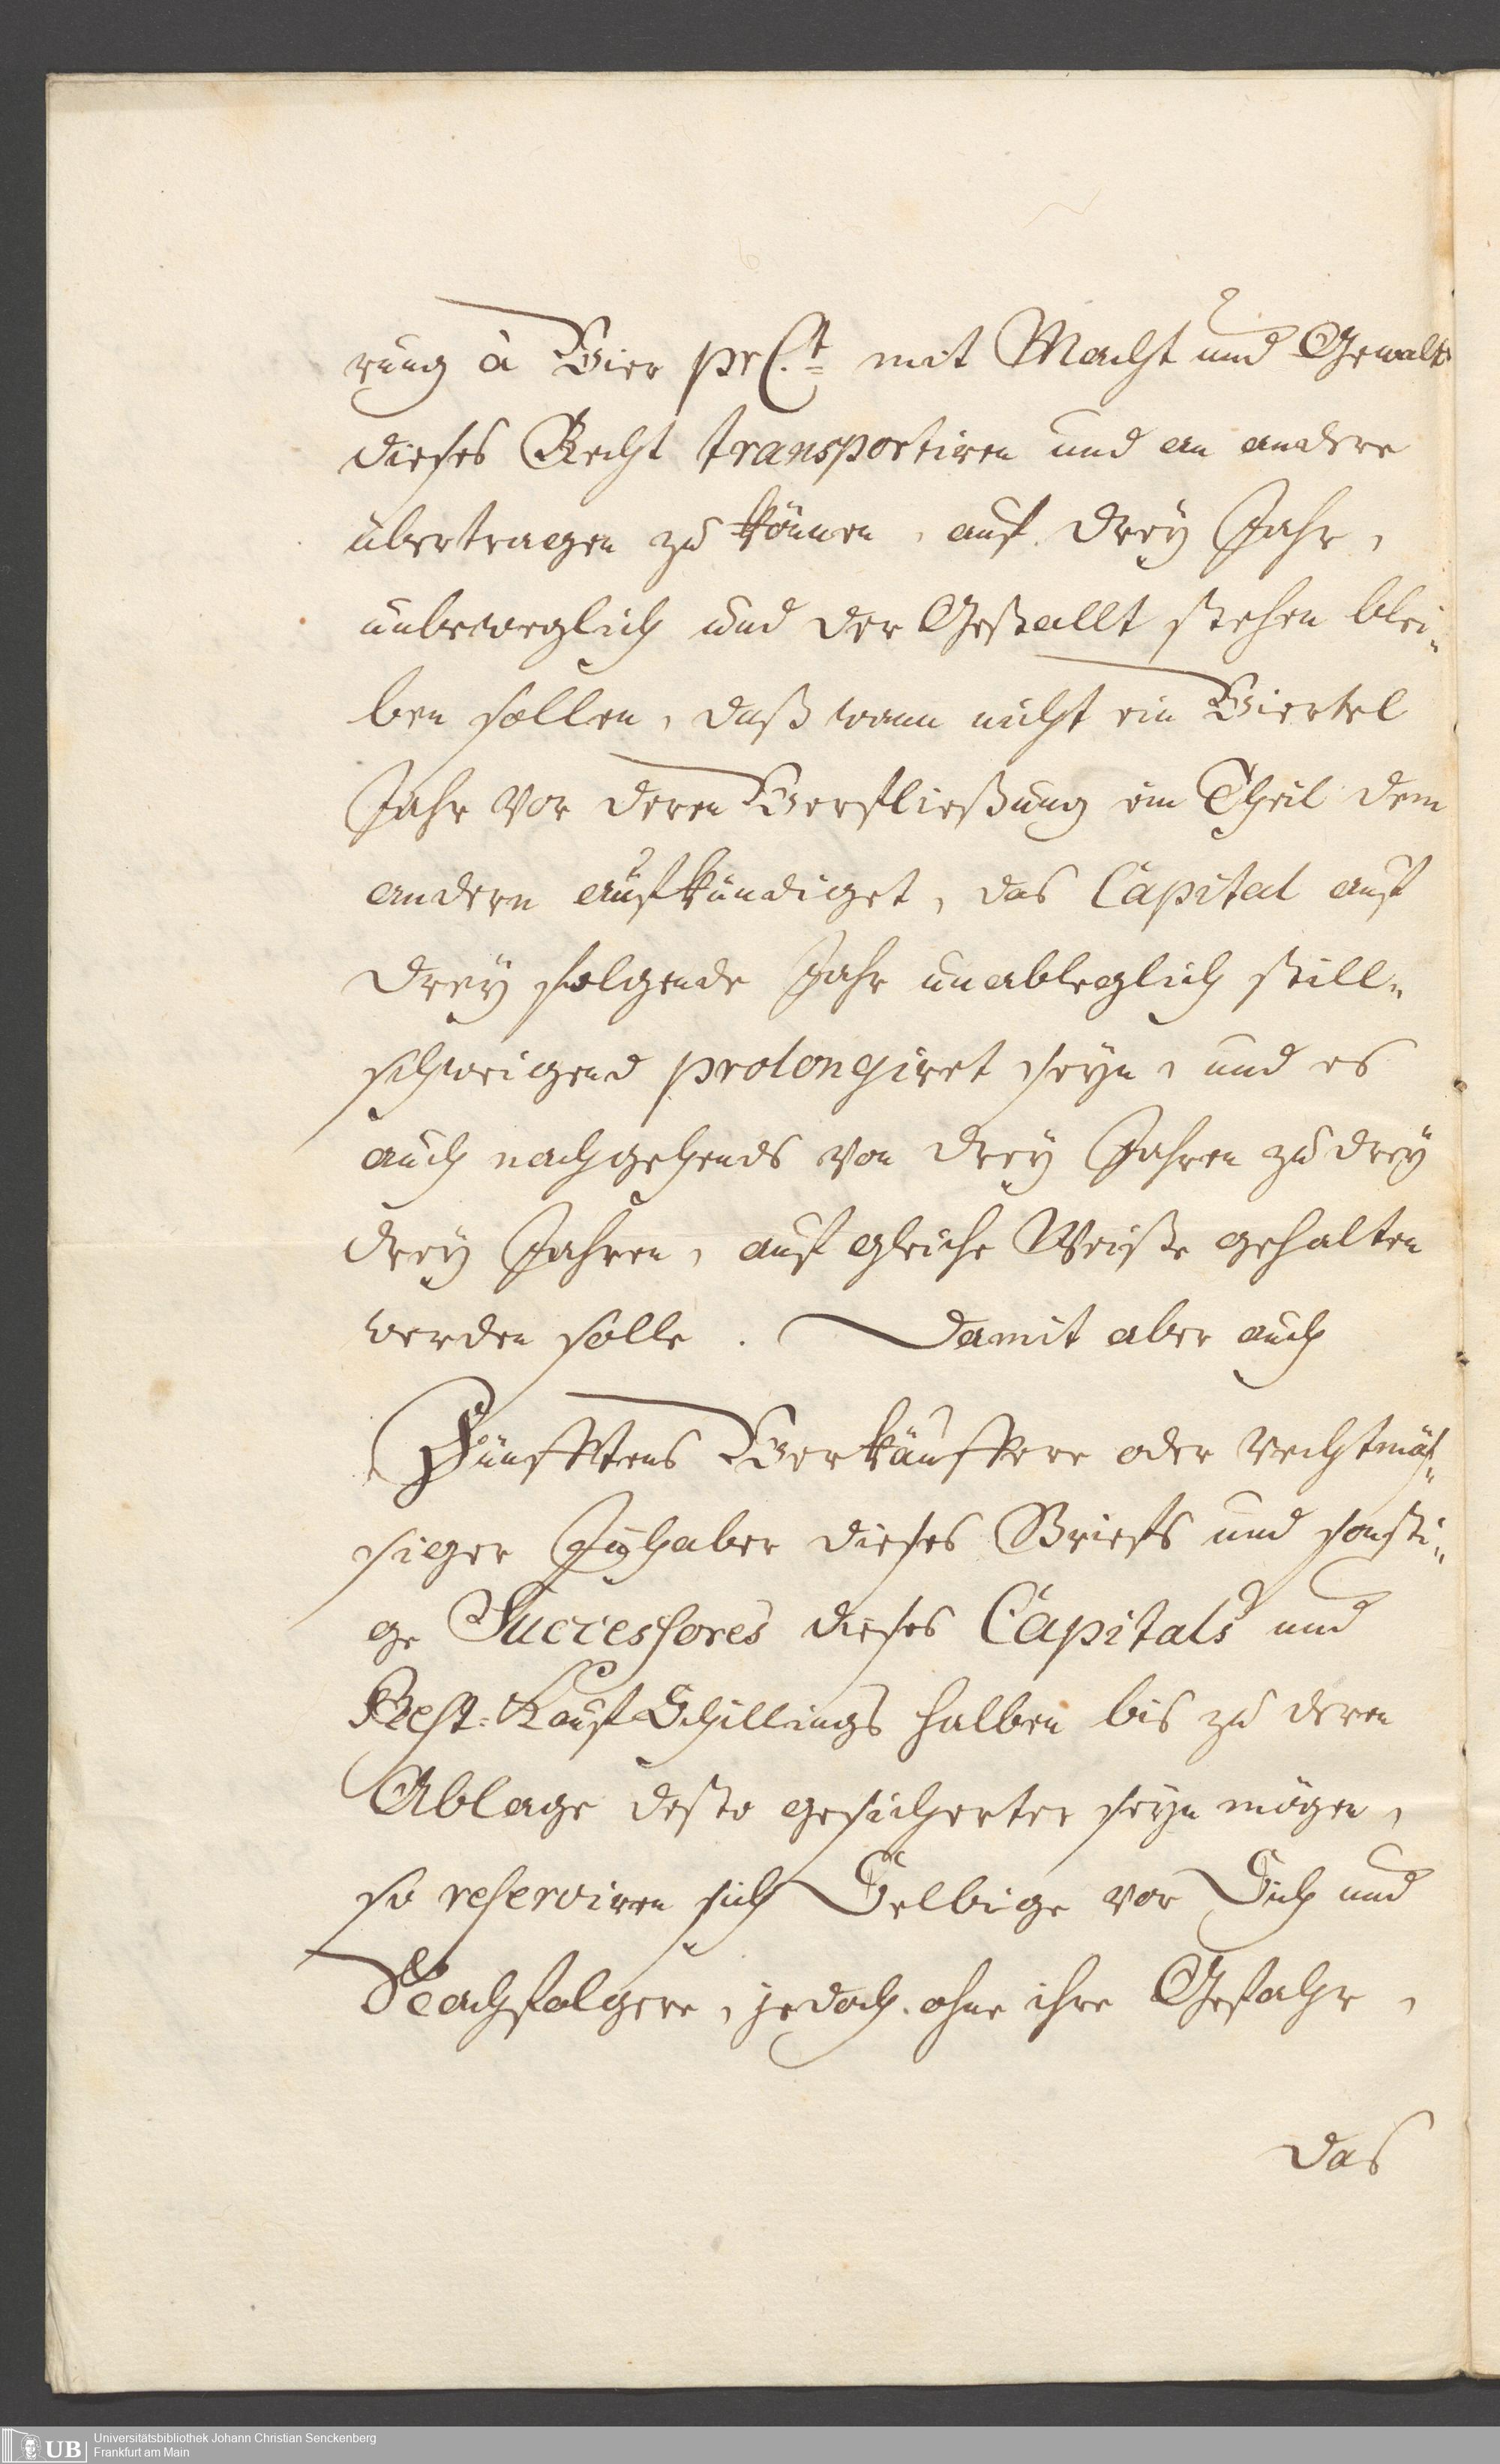 rung à Vier prC.t mit Macht und Gewalt
dieses Recht transportiren und an andere
übertragen zu können, auf drey Jahr,
unbeweglich und der Gestallt stehen blei-
ben sollen, daß wann nicht ein Viertel
Jahr vor deren Verfließung ein Theil dem
andern aufkündiget, das Capital auf
drey folgende Jahr unableglich still-
schweigend prolongiret seyn, und es
auch nachgehends von drey Jahren zu drey
drey Jahren, auf gleiche Weiße gehalten
werden solle. Damit aber auch
Fünfftens Verkäuffere oder rechtmäs-
siger Innhaber dieses Briefs und sonsti-
ge Successores dieses Capitals und
Rest-Kauf Schillings halben bis zu deren
Ablage desto gesicherter seyn mögen,
so reserviren sich Selbige vor Sich und
Nachfolgere, jedoch ohne ihre Gefahr,
das
UB
Universitätsbibliothek Johann Christian Senckenberg
Frankfurt am Main